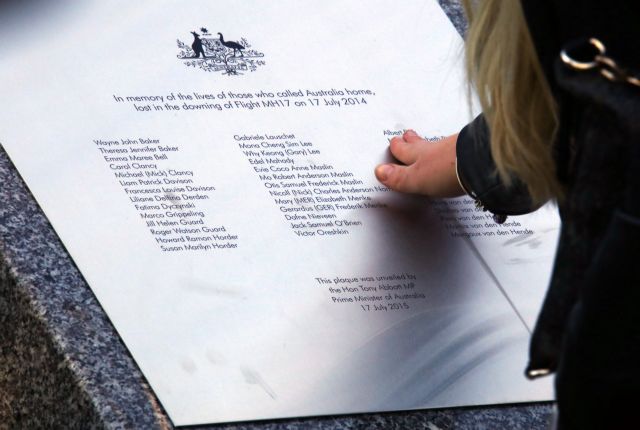 In memory of the lives of those who called Australia home,
lost in the downing of Flight MH17 on 17 July 2014
Wayne John Baker
Theresa Jennifer Baker
Emma Maree Bell
Carol Clancy
Michael (Mick) Clancy
Liam Patrick Davison
Francesca Louise Davison
Liliane Derden
Fatima Dyczynski
Marco Grippeling
Jill Helen Guard
Roger Watson Guard
Howard Ramon Horder
Susan Marilyn Horder
Gabriele Lauschet
Mona Cheng Sim Lee
Why Keong (Gary) Lee
Edel Mahady
Evie Coco Anne Maslin
Mo Robert Anderson Maslin
Otis Samuel Frederick Maslin
Nicoll (Nick) Charles Anderson Norris
Mary (MER) Elizabeth Menke
Gerardus (GER) Frederik Menke
Dafne Nieveen
Jack Samuel O'Brien
Victor Oreshkin
Albert
van den Hende
Margaux van den Hende
This plaque was unveiled by
the Hon Tony Abbott MP
Prime Minister of Australia
17 July 2015